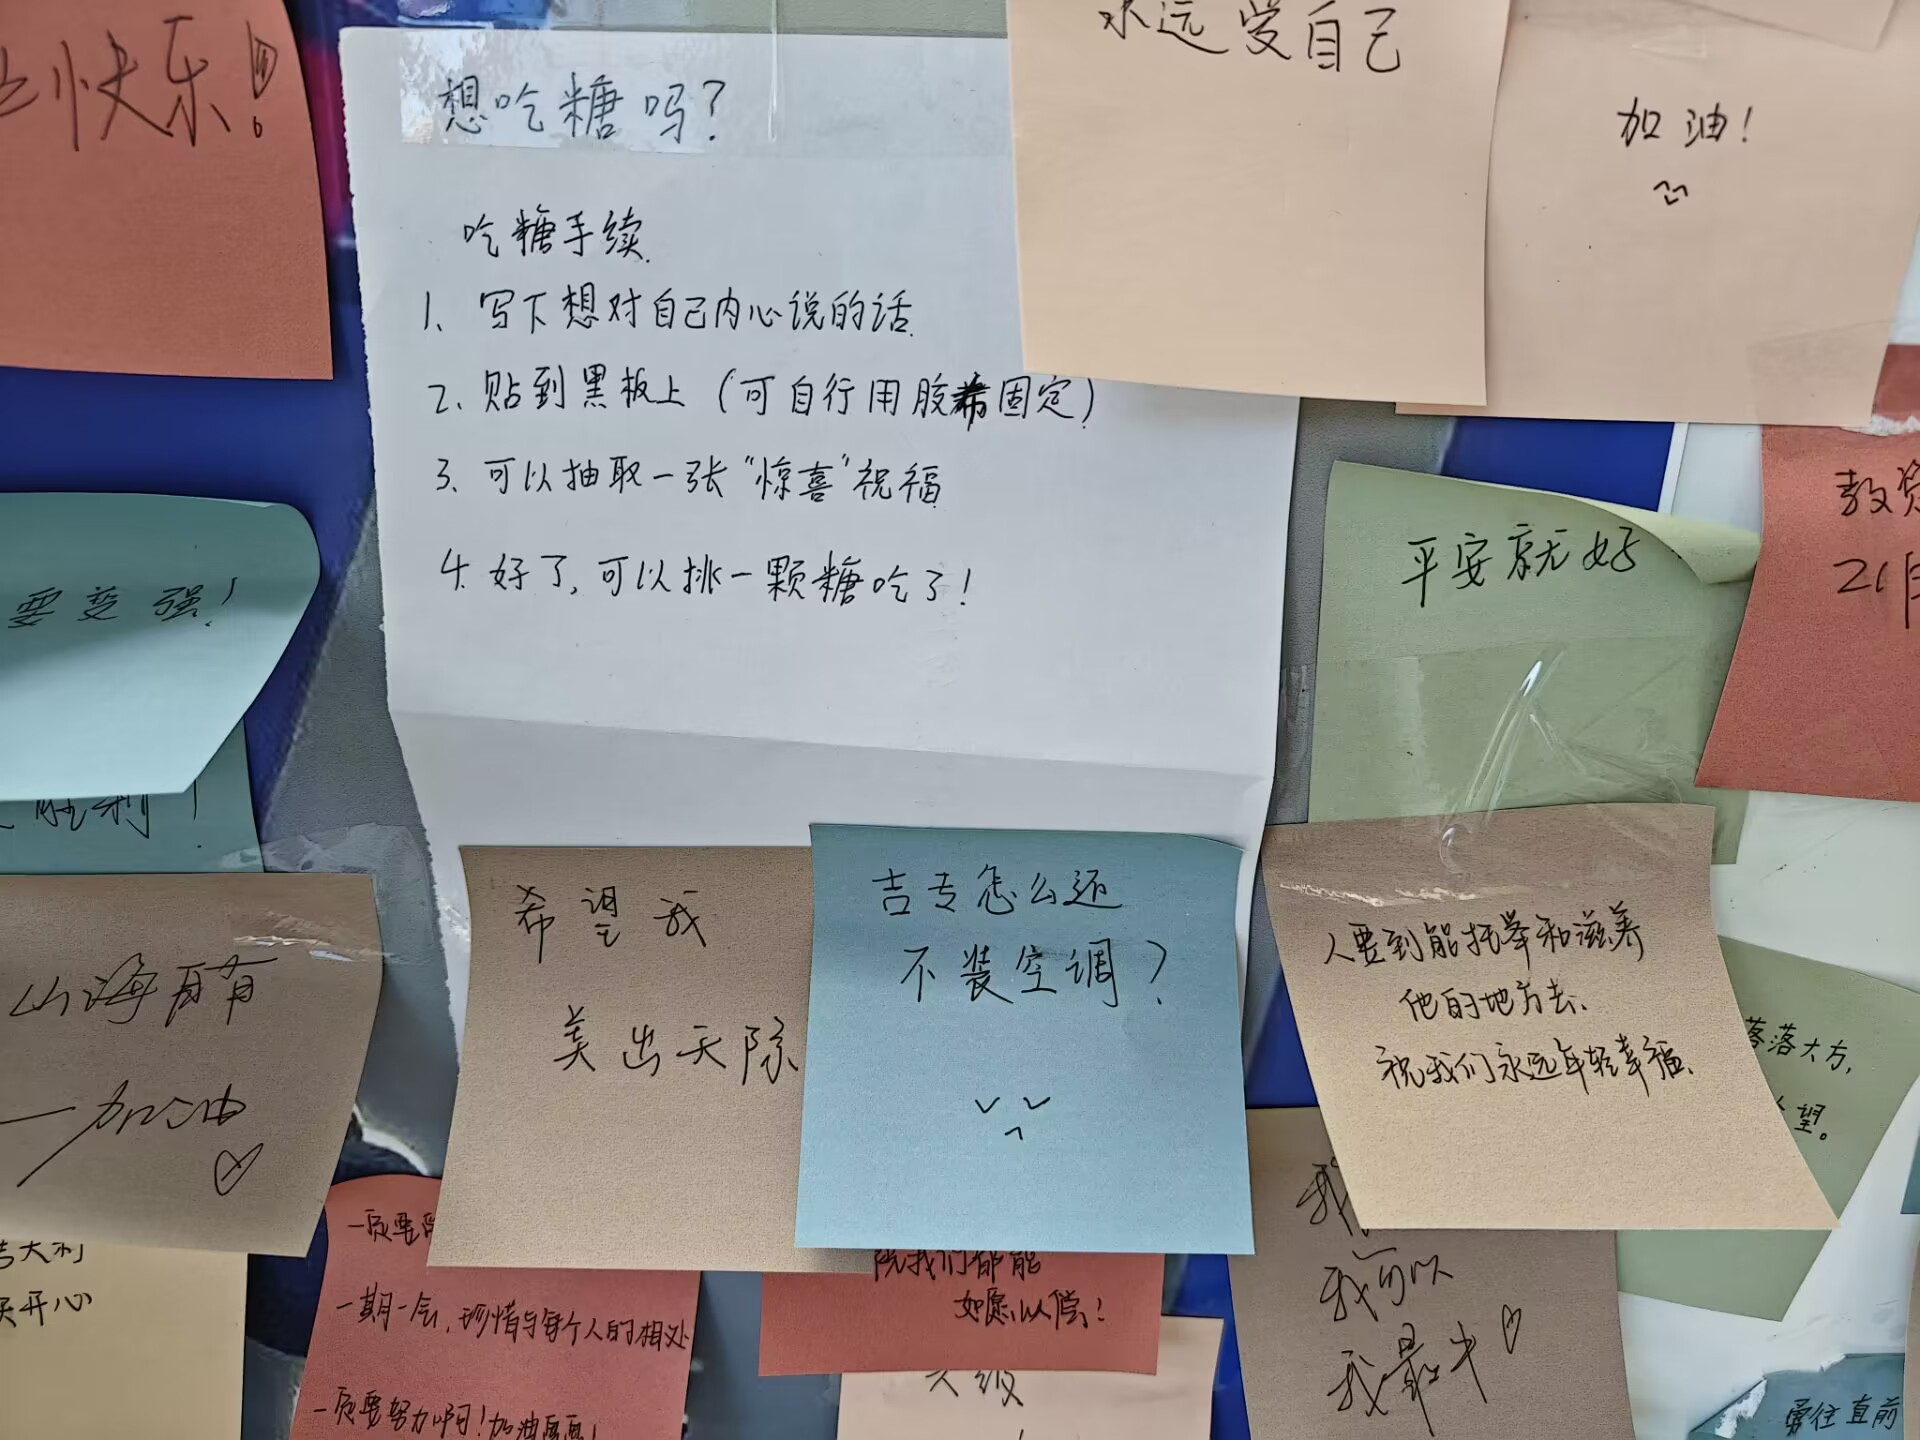 快乐!
想吃糖吗?
吃糖手续.
1、写下想对自己内心说的话.
2、贴到黑板上(可自行用胶布固定)
3、可以抽取一张“惊喜”祝福
4. 好了,可以挑一颗糖吃了!
永远爱自己
加油!
要变强!
胜利!
平安就好
教资
山海自有
——加油
希望我
美出天际
吉专怎么还
不装空调?
人要到能托举和滋养
他的地方去.
祝我们永远年轻幸福.
落落大方,
望。
大利
开心
一定要
一期一会,珍惜与每个人的相处
一定要努力啊!加油
我们都能
如愿以偿!
我
我可以
我最牛
勇往直前